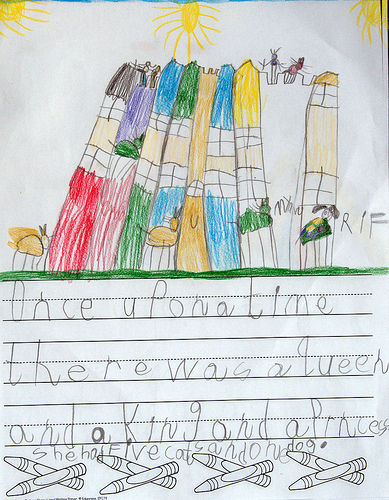 RIF
Once upona time
there was a queen
and a King and a Princess
she had Five cats and one dog.